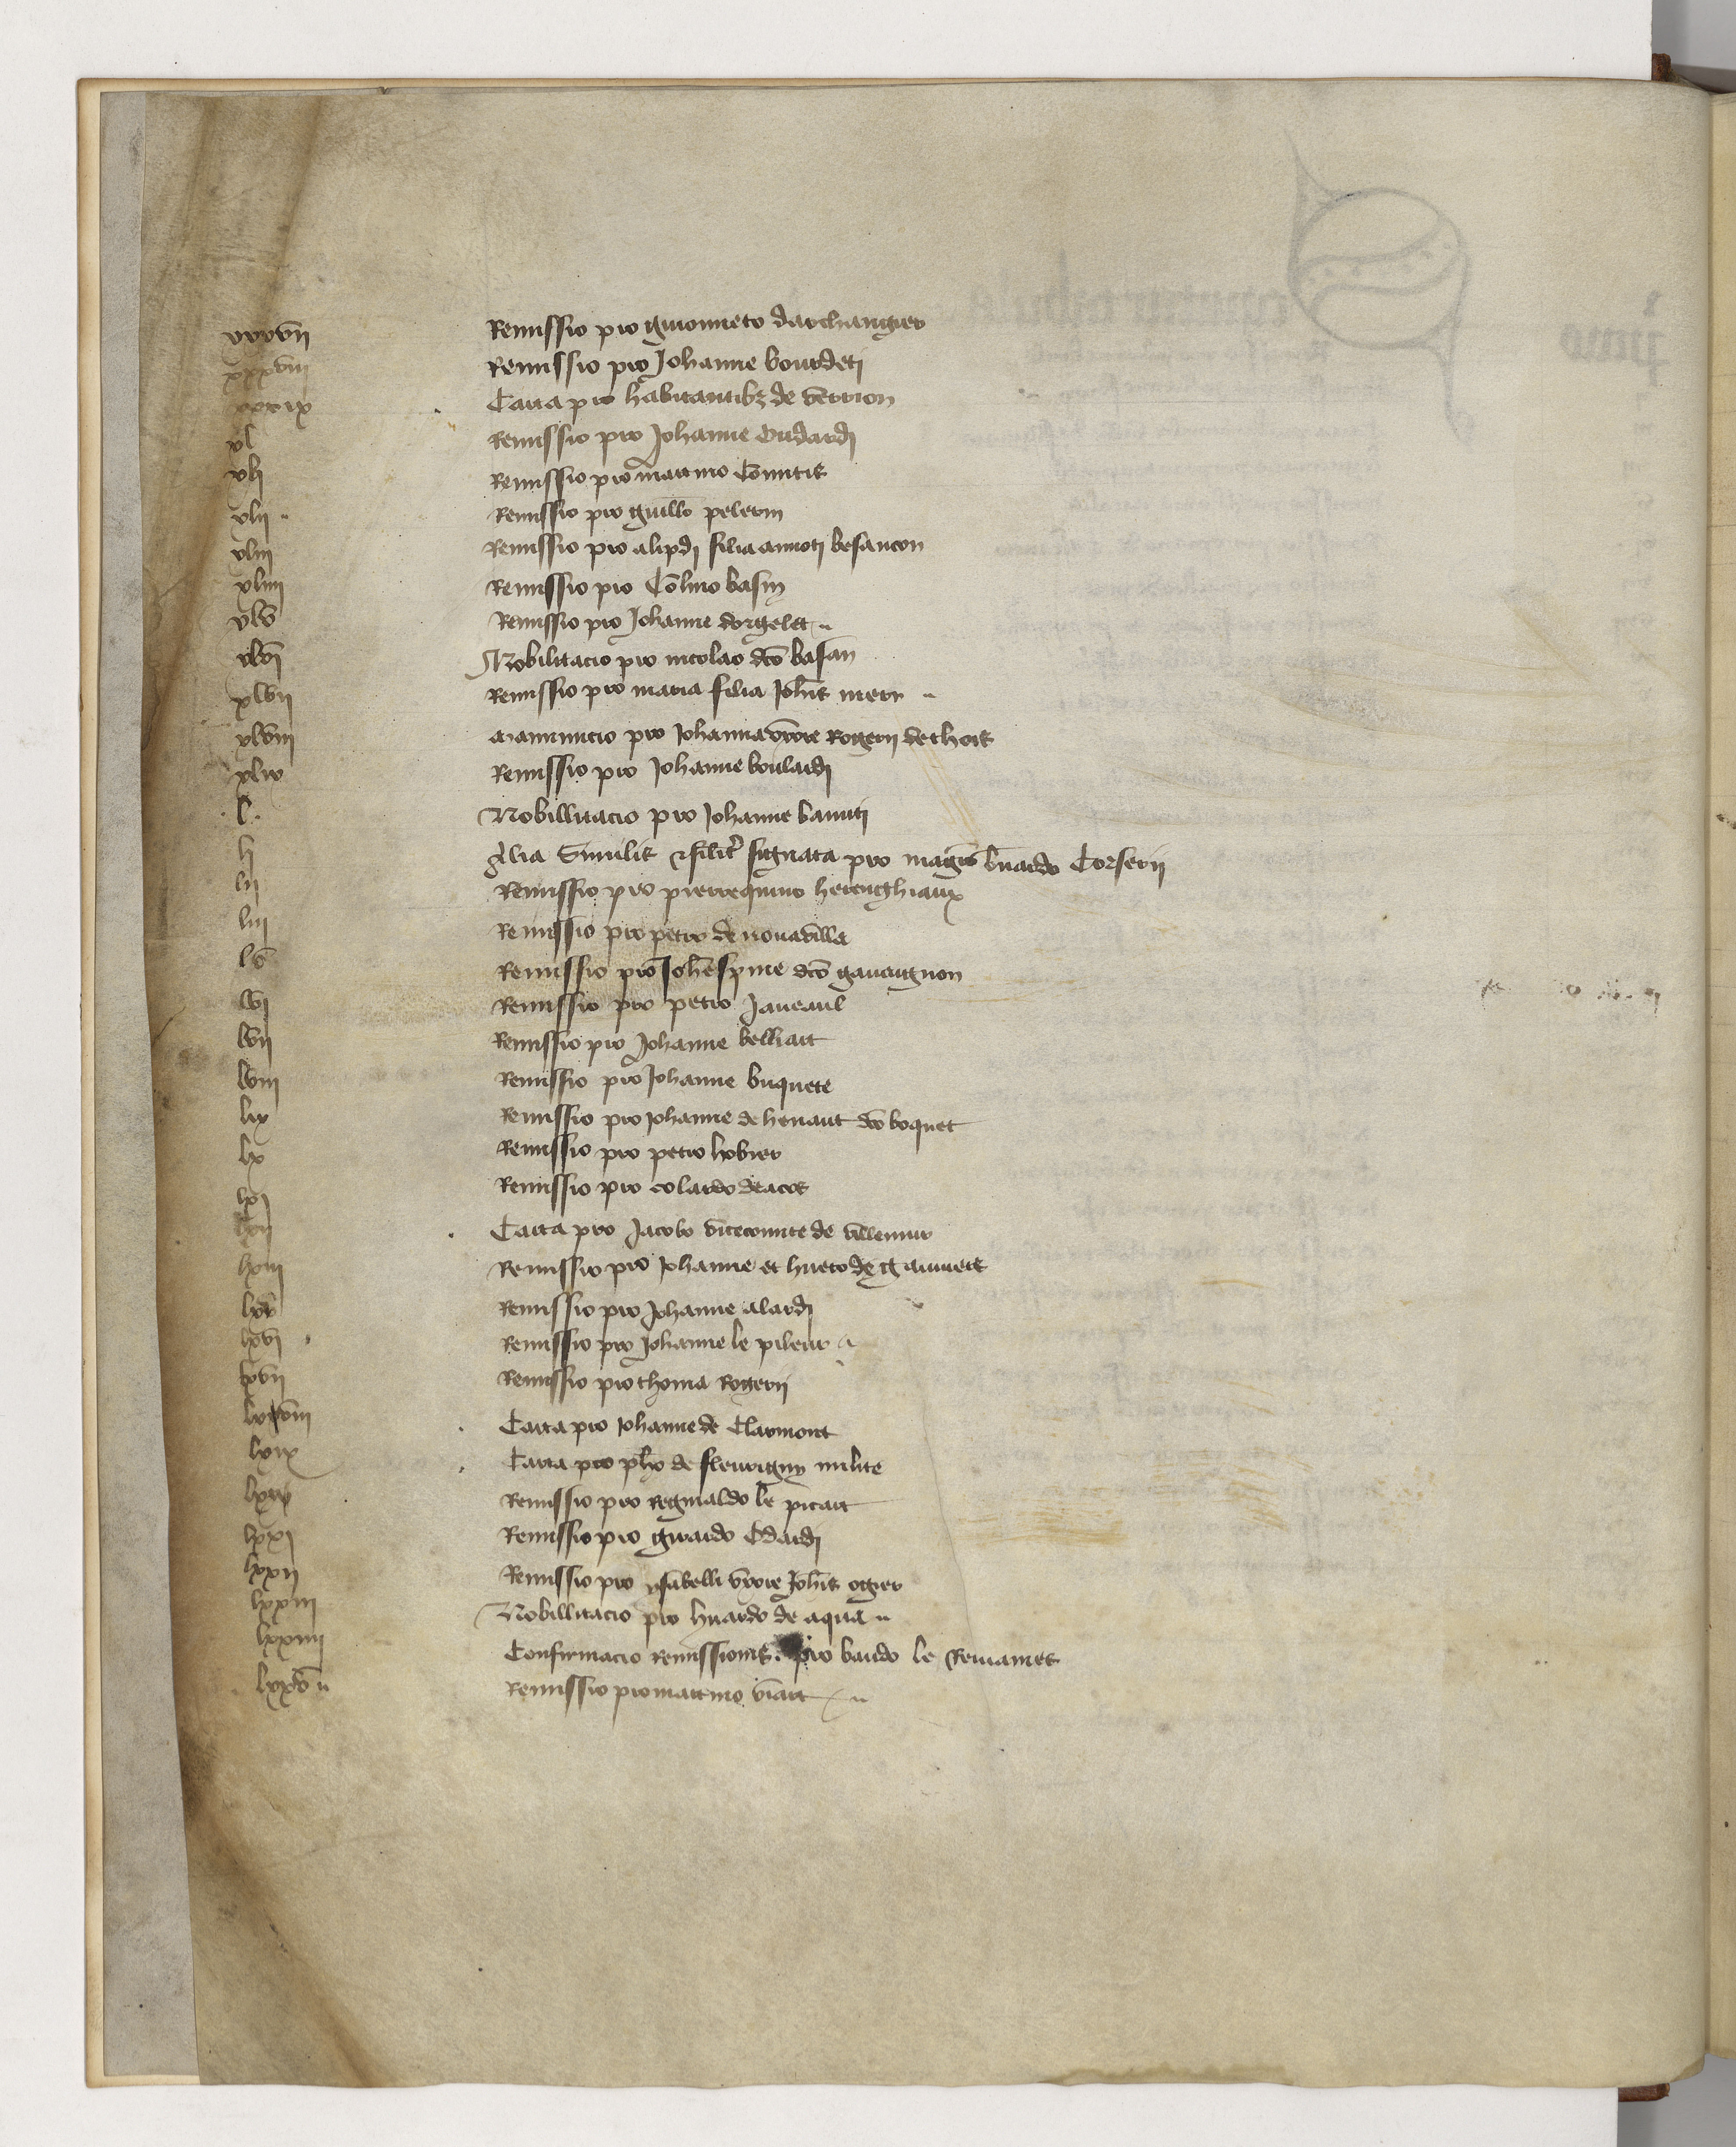 xxxvii Remissio pro guionneto darchangier
xxxviii Remissio pro Johanne bourdeti
xxxix Carta pro habitantibz de verrion
xl Remissio pro Johanne Oudardi
xli Remissio pro martino Comitis
xlii Remissio pro guillo pelerin
xliii Remissio pro alipdi filia amioti besancon
xliiii Remissio pro Colino basin
xlv Remissio pro Johanne dorgelet
xlvi Nobilitacio pro nicolao dco basan
xlvii Remissio pro maria filia Johis mery
xlviii Manumicio pro Johanna uxore Rogerii de thors
xlix Remissio pro Johanne boulardi
l Nobillitacio pro Johanne
li Alia Similis & silitr signata pro magro bnardo Corserii
lii Remissio pro pierrequino herenghiaux
liii Remissio pro petro de novavilla
lv Remissio pro Johe spine dco gavaignon
lvi Remissio pro petro Javeaul
lvii Remissio pro Johanne belliart
lviii Remissio pro Johanne buquete
lix Remissio pro Johanne de henaut dco boquet
lx Remissio pro petro hobier
lxi Remissio pro colardo
lxii Carta pro Jacobo vicecomite de villemur
lxiii Remissio pro Johanne et hueto de
lxv Remissio pro Johanne alardi
lxvi Remissio pro Johanne le pileur
lxvii Remissio pro thoma Rogerii
lxviii Carta pro Johanne de Clarmont
lxix Carta pro pho de fleurigny milite
lxx Remissio pro Reginaldo le picart
lxxi Remissio pro girardo Odardi
lxxii Remissio pro ysabelli uxore Johis ogier
lxxiii Nobillitacio pro huardo de aqua
lxxiiii Confirmacio remissionis pro baudo le
lxxv Remissio pro martino viart